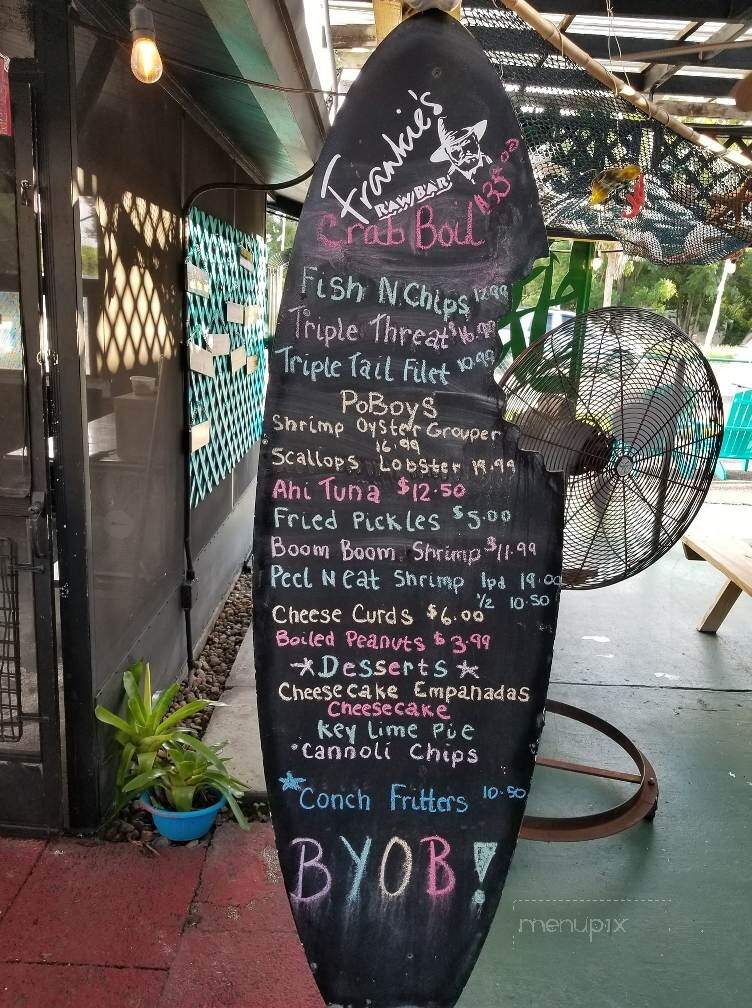 Frankie's
RAW BAR
Crab Boil $35.00
Fish N Chips 12.99
Triple Threat $16.99
Triple Tail Filet 10.99
PoBoys
Shrimp Oyster Grouper
16.99
Scallops Lobster 19.99
Ahi Tuna $12.50
Fried Pickles $5.00
Boom Boom Shrimp $11.99
Peel N eat Shrimp 1pd 19.00
1/2 10.50
Cheese Curds $6.00
Boiled Peanuts $3.99
*Desserts*
Cheesecake Empanadas
Cheesecake
Key Lime Pie
•Cannoli Chips
*Conch Fritters 10.50
BYOB!
menupix